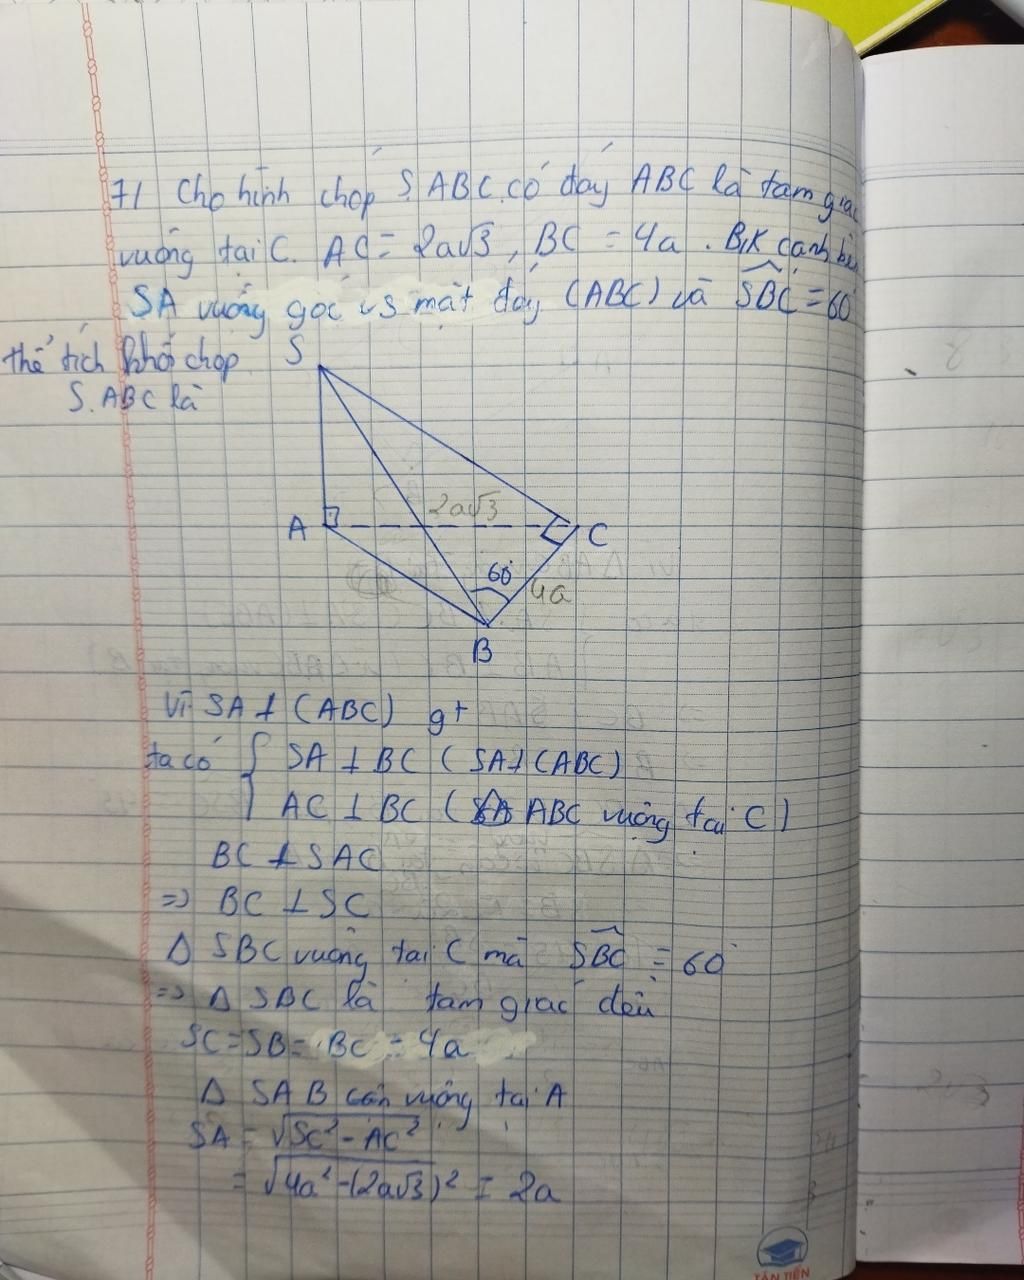 71 Cho hình chóp S.ABC có đáy ABC là tam giác
vuông tại C. AC = 2a√3, BC = 4a. B,K cạnh bên
SA vuông góc vs mặt đáy (ABC) và SBC = 60°
thể tích khối chóp
S.ABC là
S
A
2a√3
C
60°
4a
B
Vì SA ⊥ (ABC) gt
ta có { SA ⊥ BC ( SA ⊥ (ABC)
AC ⊥ BC ( ABC vuông tại C )
BC ⊥ SAC
=> BC ⊥ SC
Δ SBC vuông tại C mà SBC = 60°
=> Δ SBC là tam giác đều
SC = SB = BC = 4a
Δ SAB cân vuông tại A
SA = √SC² - AC²
= √4a² - (2a√3)² = 2a
TÂN TIẾN